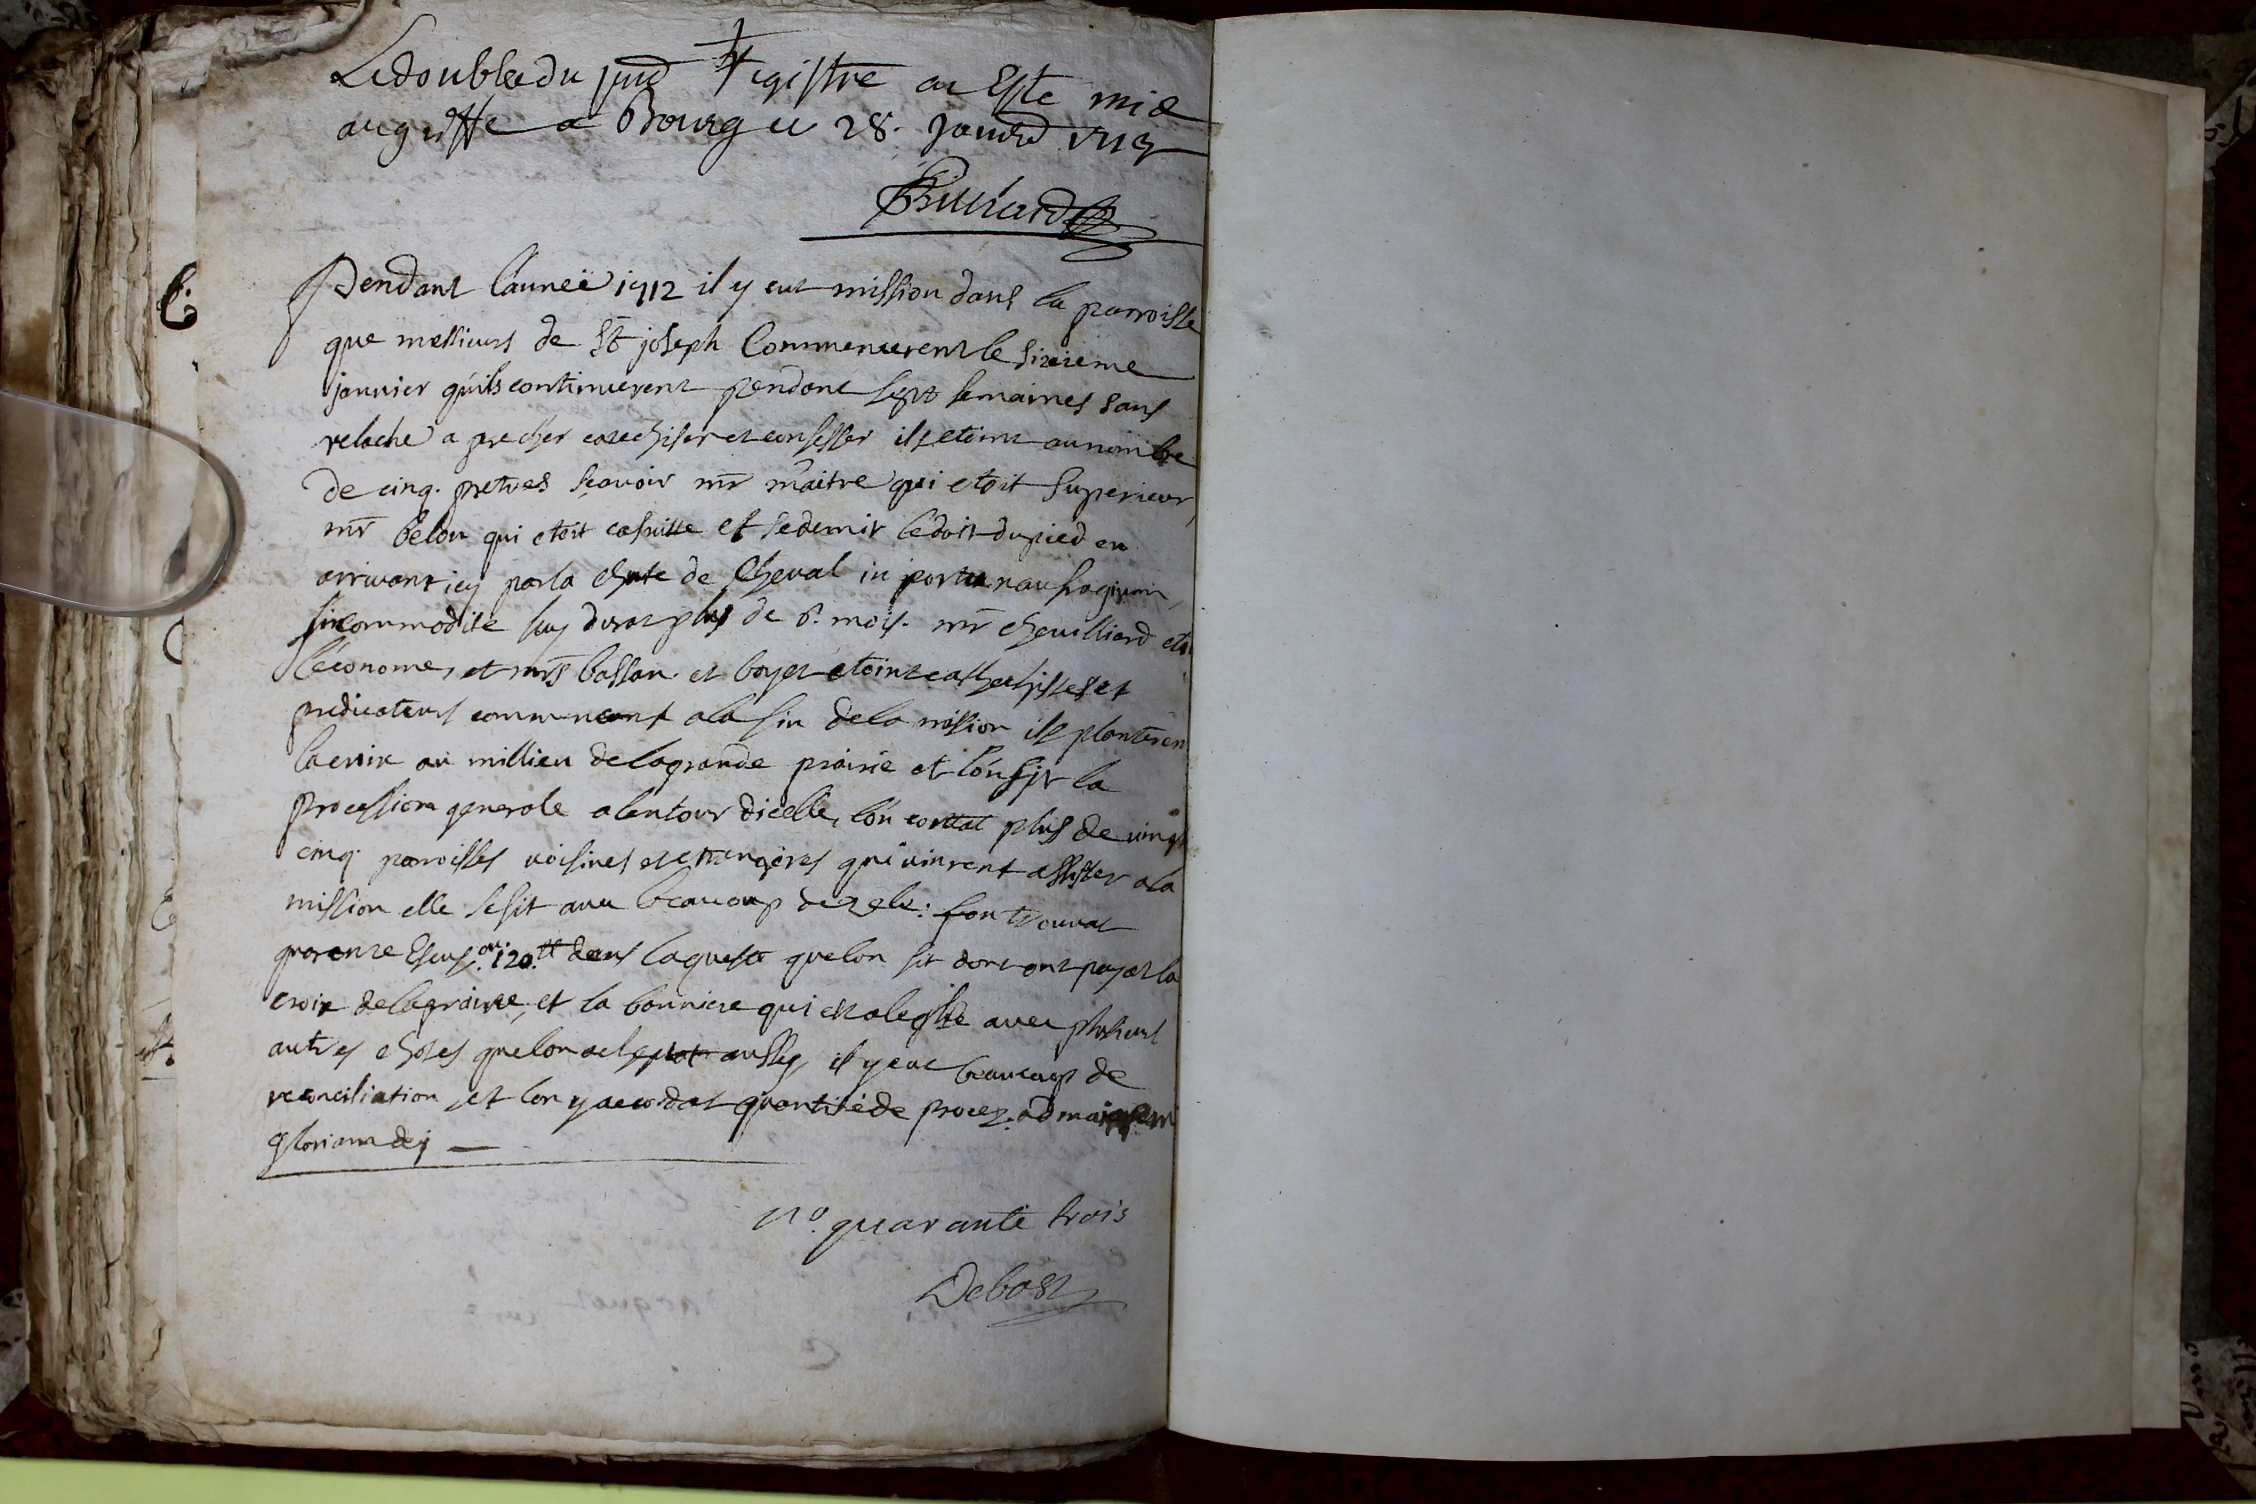 Le double du pnt Registre a Este mis
au greffe a Bourg le 28. Janvier
Pendant l'année 1712 il y eut mission dans la parroisse
que messieurs de St joseph Commencerent le sixieme
janvier qu'ils continuerent pendant sept semaines sans
relache a precher catechiser et confesser ils etoint au nombre
de cinq. pretres sçavoir mr maitre qui etoit superieur,
mr belon qui etoit casuiste et se demit le doit du pied en
arrivant icy par la chute de Cheval in portu naufragium,
l'incommodité luy durat plus de 6. mois. mr chevilliard etoi
l'econome, et mrs bassan et boyer etoint cathechistes et
predicateurs a la fin de la mission ils planteren
la croix au millieu de la grande prairie et l'on fit la
procession generale a lentour dicelle, l'on contat plus de vingt
cinq. parroisses voisines et etrangeres qui vinrent assister a la
mission elle se fit avec beaucoup de zele: l'on trouvat
quarente Escus. ou. 120.tt dans la queste que lon fit dont ont payat la
croix de la prairie, et la banniere qui est a leglise avec plusieurs
autres choses que lon acheptat aussy, il y eut beaucoup de
reconciliation, et lon y accordat quantité de procez. ad maiorem
gloriam dej —
No. quarante trois
Debost